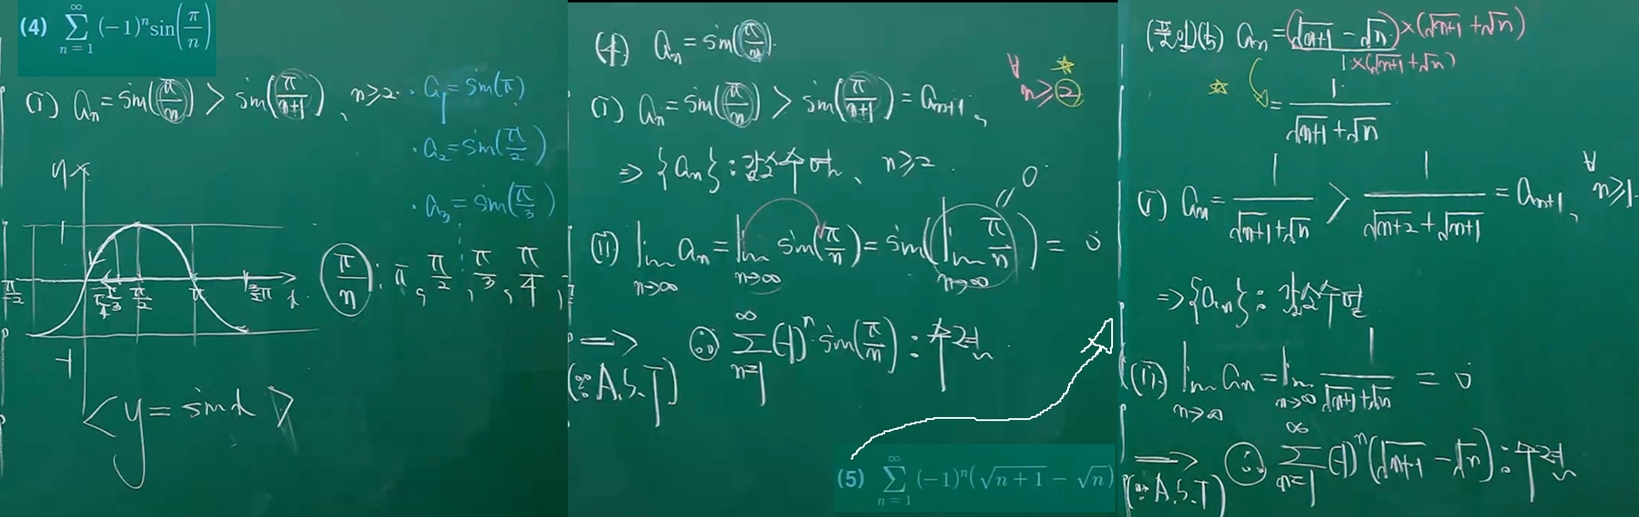 (4) \sum_{n=1}^{\infty} (-1)^n \sin\left(\frac{\pi}{n}\right)
(i) a_n = \sin\left(\frac{\pi}{n}\right) > \sin\left(\frac{\pi}{n+1}\right), n≥2
· a_1 = \sin(π)
· a_2 = \sin\left(\frac{\pi}{2}\right)
· a_3 = \sin\left(\frac{\pi}{3}\right)
1
\frac{\pi}{2} π \frac{3}{2}π x
-1
\frac{\pi}{n} : π, \frac{\pi}{2}, \frac{\pi}{3}, \frac{\pi}{4},
<y = sin x>
(4) a_n = \sin\left(\frac{\pi}{n}\right)
(i) a_n = \sin\left(\frac{\pi}{n}\right) > \sin\left(\frac{\pi}{n+1}\right) = a_{n+1}, ∀ n≥2 ☆
⇒ {a_n} : 감소수열, n≥2
(ii) \lim_{n→∞} a_n = \lim_{n→∞} \sin\left(\frac{\pi}{n}\right) = \sin\left(\lim_{n→∞} \frac{\pi}{n}\right) = 0
0
⟶ (∵ A.S.T) ∴ \sum_{n=1}^{\infty} (-1)^n \sin\left(\frac{\pi}{n}\right) : 수렴
(5) \sum_{n=1}^{\infty} (-1)^n (\sqrt{n+1} - \sqrt{n})
(풀이)(5) a_n = \frac{(\sqrt{n+1} - \sqrt{n}) × (\sqrt{n+1} + \sqrt{n})}{1 × (\sqrt{n+1} + \sqrt{n})}
☆ = \frac{1}{\sqrt{n+1} + \sqrt{n}}
(i) a_n = \frac{1}{\sqrt{n+1} + \sqrt{n}} > \frac{1}{\sqrt{n+2} + \sqrt{n+1}} = a_{n+1}, ∀ n≥1
⇒ {a_n} : 감소수열
(ii) \lim_{n→∞} a_n = \lim_{n→∞} \frac{1}{\sqrt{n+1} + \sqrt{n}} = 0
⟶ (∵ A.S.T) ∴ \sum_{n=1}^{\infty} (-1)^n (\sqrt{n+1} - \sqrt{n}) : 수렴